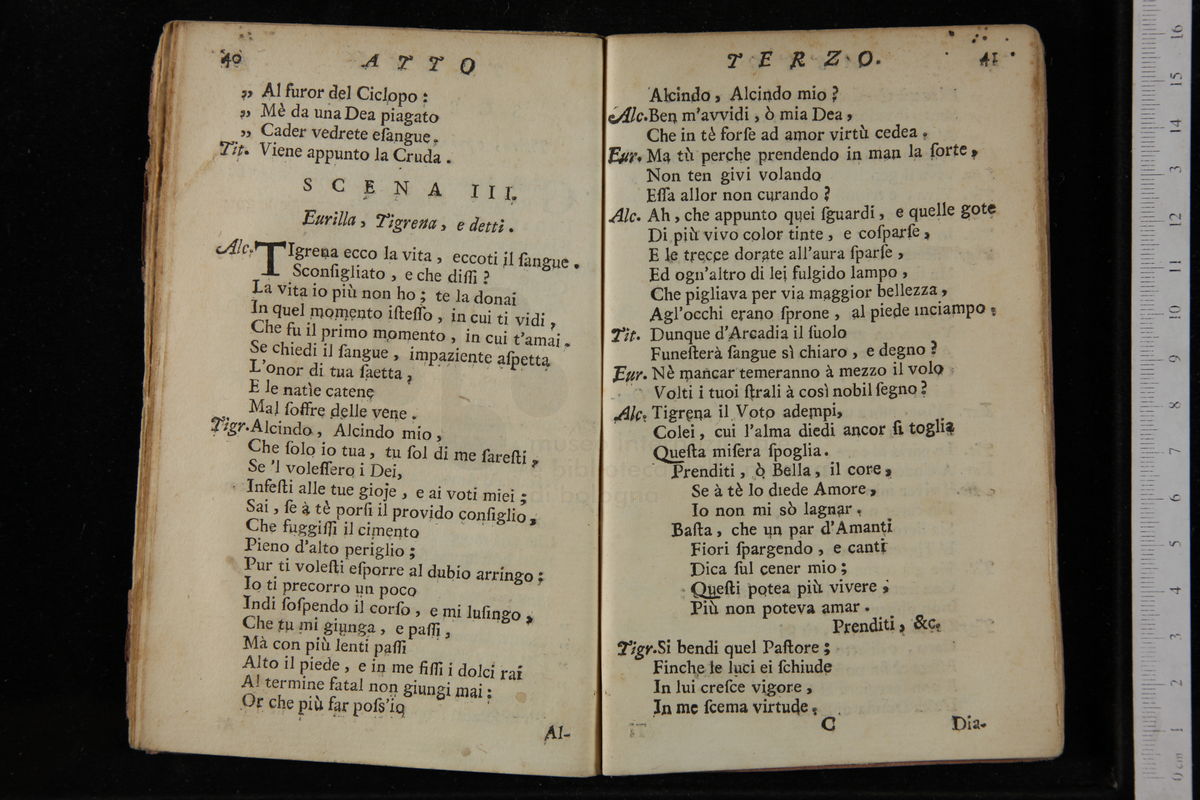 40 ATTO
„ Al furor del Ciclopo :
„ Mè da una Dea piagato
„ Cader vedrete eſangue.
Tit. Viene appunto la Cruda .
SCENA III.
Eurilla, Tigrena, e detti .
Alc. TIgrena ecco la vita , eccoti il ſangue .
Sconſigliato , e che diſſi ?
La vita io più non ho ; te la donai
In quel momento iſteſſo , in cui ti vidi ,
Che fu il primo momento , in cui t'amai .
Se chiedi il ſangue , impaziente aſpetta
L'onor di tua ſaetta ,
E le natìe catene
Mal ſoffre delle vene .
Tigr. Alcindo , Alcindo mio ,
Che ſolo io tua , tu ſol di me ſareſti ,
Se 'l voleſſero i Dei,
Infeſti alle tue gioje , e ai voti miei ;
Sai , ſe à tè porſi il provido conſiglio ,
Che fuggiſſi il cimento
Pieno d'alto periglio ;
Pur ti voleſti eſporre al dubio arringo ;
Io ti precorro un poco
Indi ſoſpendo il corſo , e mi luſingo ,
Che tu mi giunga , e paſſi ,
Mà con più lenti paſſi
Alto il piede , e in me fiſſi i dolci rai
Al termine fatal non giungi mai :
Or che più far poſs'io
Al-
TERZO. 41
Alcindo , Alcindo mio ?
Alc. Ben m'avvidi , ò mia Dea ,
Che in tè forſe ad amor virtù cedea .
Eur. Ma tù perche prendendo in man la ſorte ,
Non ten givi volando
Eſſa allor non curando ?
Alc. Ah , che appunto quei ſguardi , e quelle gote
Di più vivo color tinte , e coſparſe ,
E le trecce dorate all'aura ſparſe ,
Ed ogn'altro di lei fulgido lampo ,
Che pigliava per via maggior bellezza ,
Agl'occhi erano ſprone , al piede inciampo .
Tit. Dunque d'Arcadia il ſuolo
Funeſterà ſangue sì chiaro , e degno ?
Eur. Nè mancar temeranno à mezzo il volo
Volti i tuoi ſtrali à così nobil ſegno ?
Alc. Tigrena il Voto adempi,
Colei , cui l'alma diedi ancor ſi toglia
Queſta miſera ſpoglia.
Prenditi , ò Bella , il core ,
Se à tè lo diede Amore ,
Io non mi sò lagnar .
Baſta , che un par d'Amanti
Fiori ſpargendo , e canti
Dica ſul cener mio ;
Queſti potea più vivere ;
Più non poteva amar .
Prenditi , &c.
Tigr. Si bendi quel Paſtore ;
Finche le luci ei ſchiude
In lui creſce vigore ,
In me ſcema virtude .
C Dia-